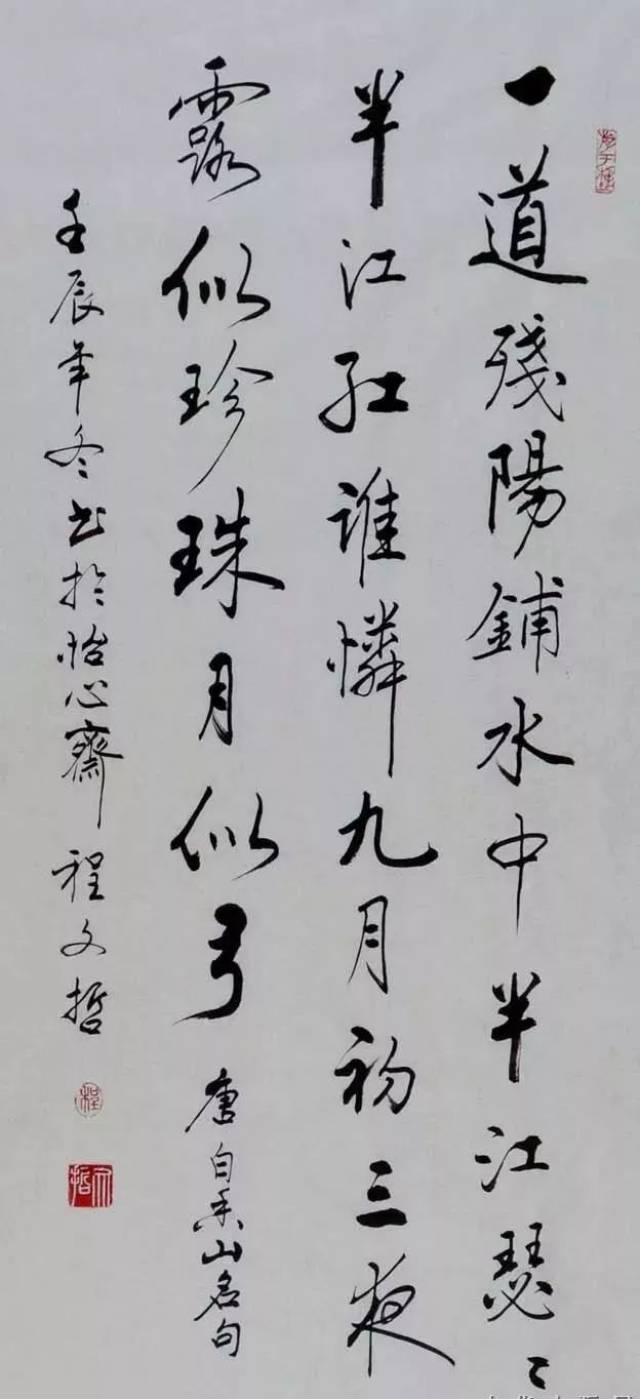 一道殘陽鋪水中半江瑟々
半江紅誰憐九月初三夜
露似珍珠月似弓 唐白香山名句
壬辰年冬書於怡心齋程文哲
程
文哲